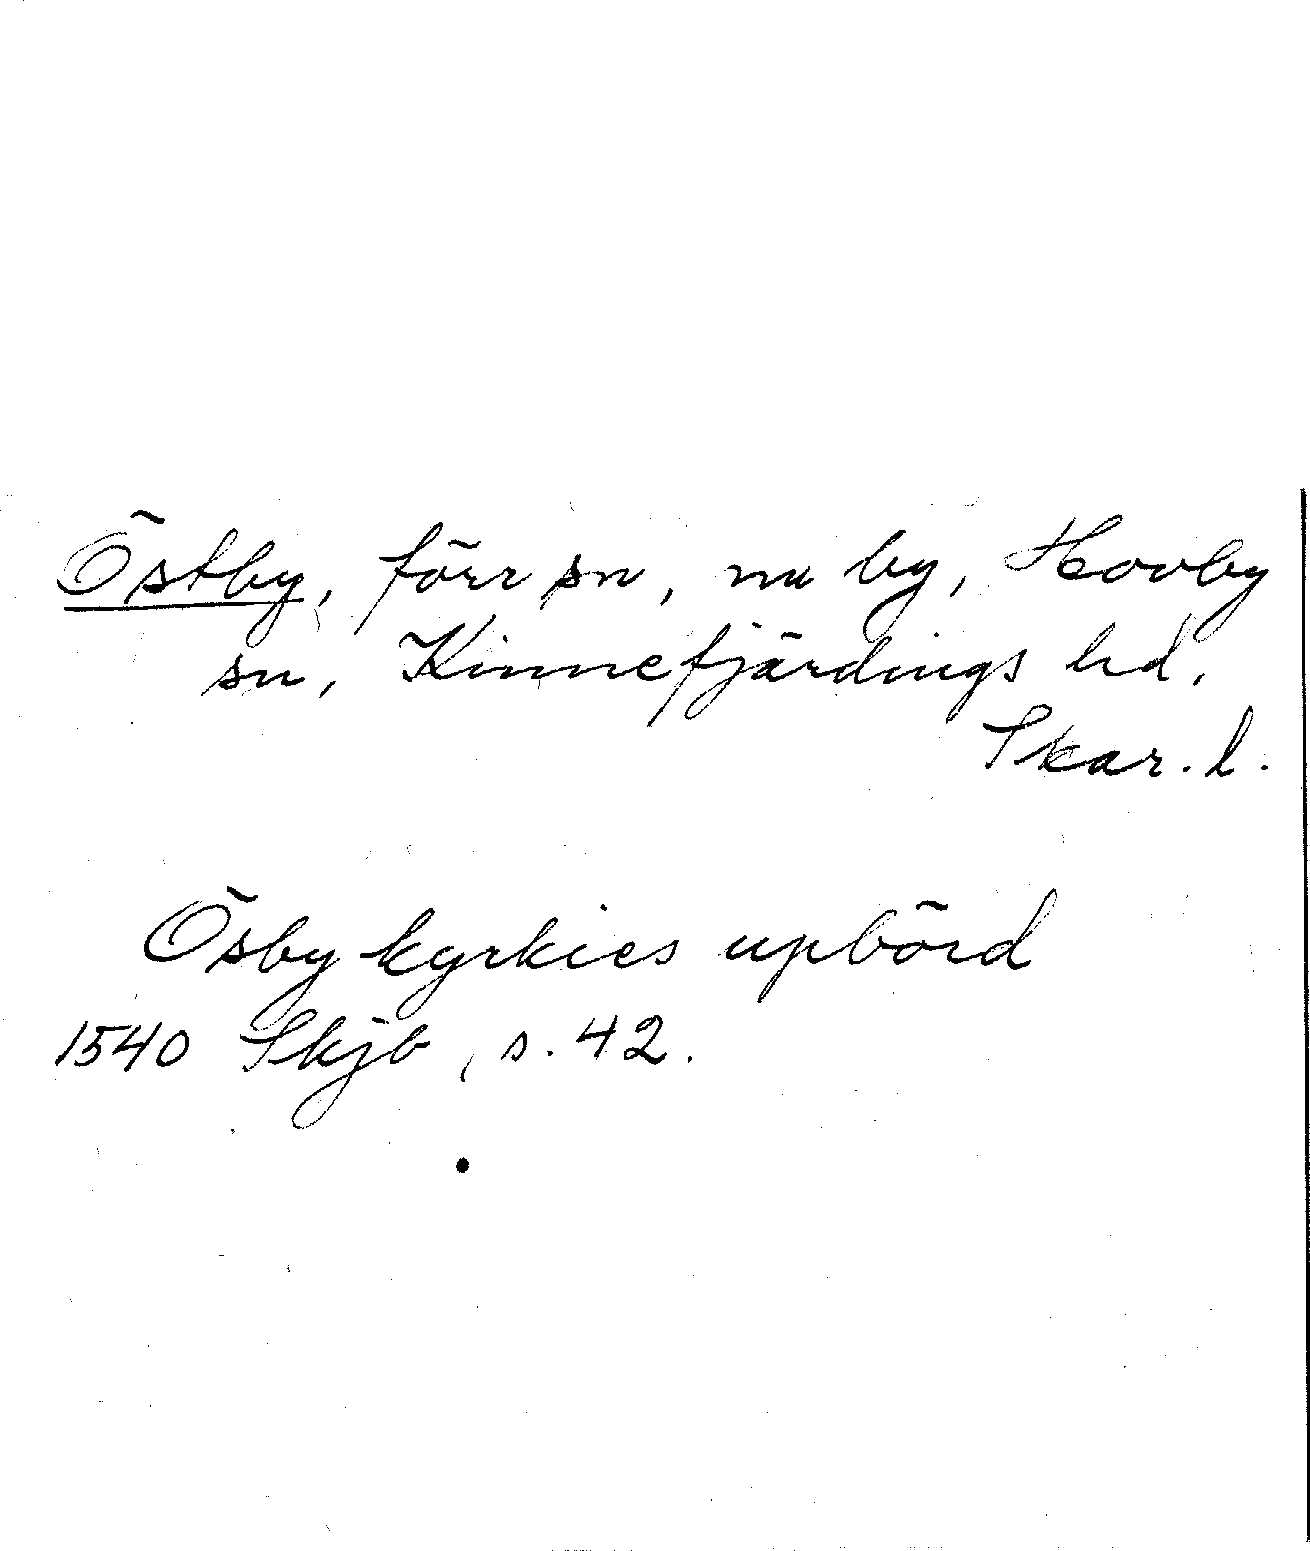 Östby, förr sn, nu by, Hovby
sn, Kinnefjärdings hd,
Skar. l.
Ösby kyrkies upbörd
1540 Skjb, s. 42.